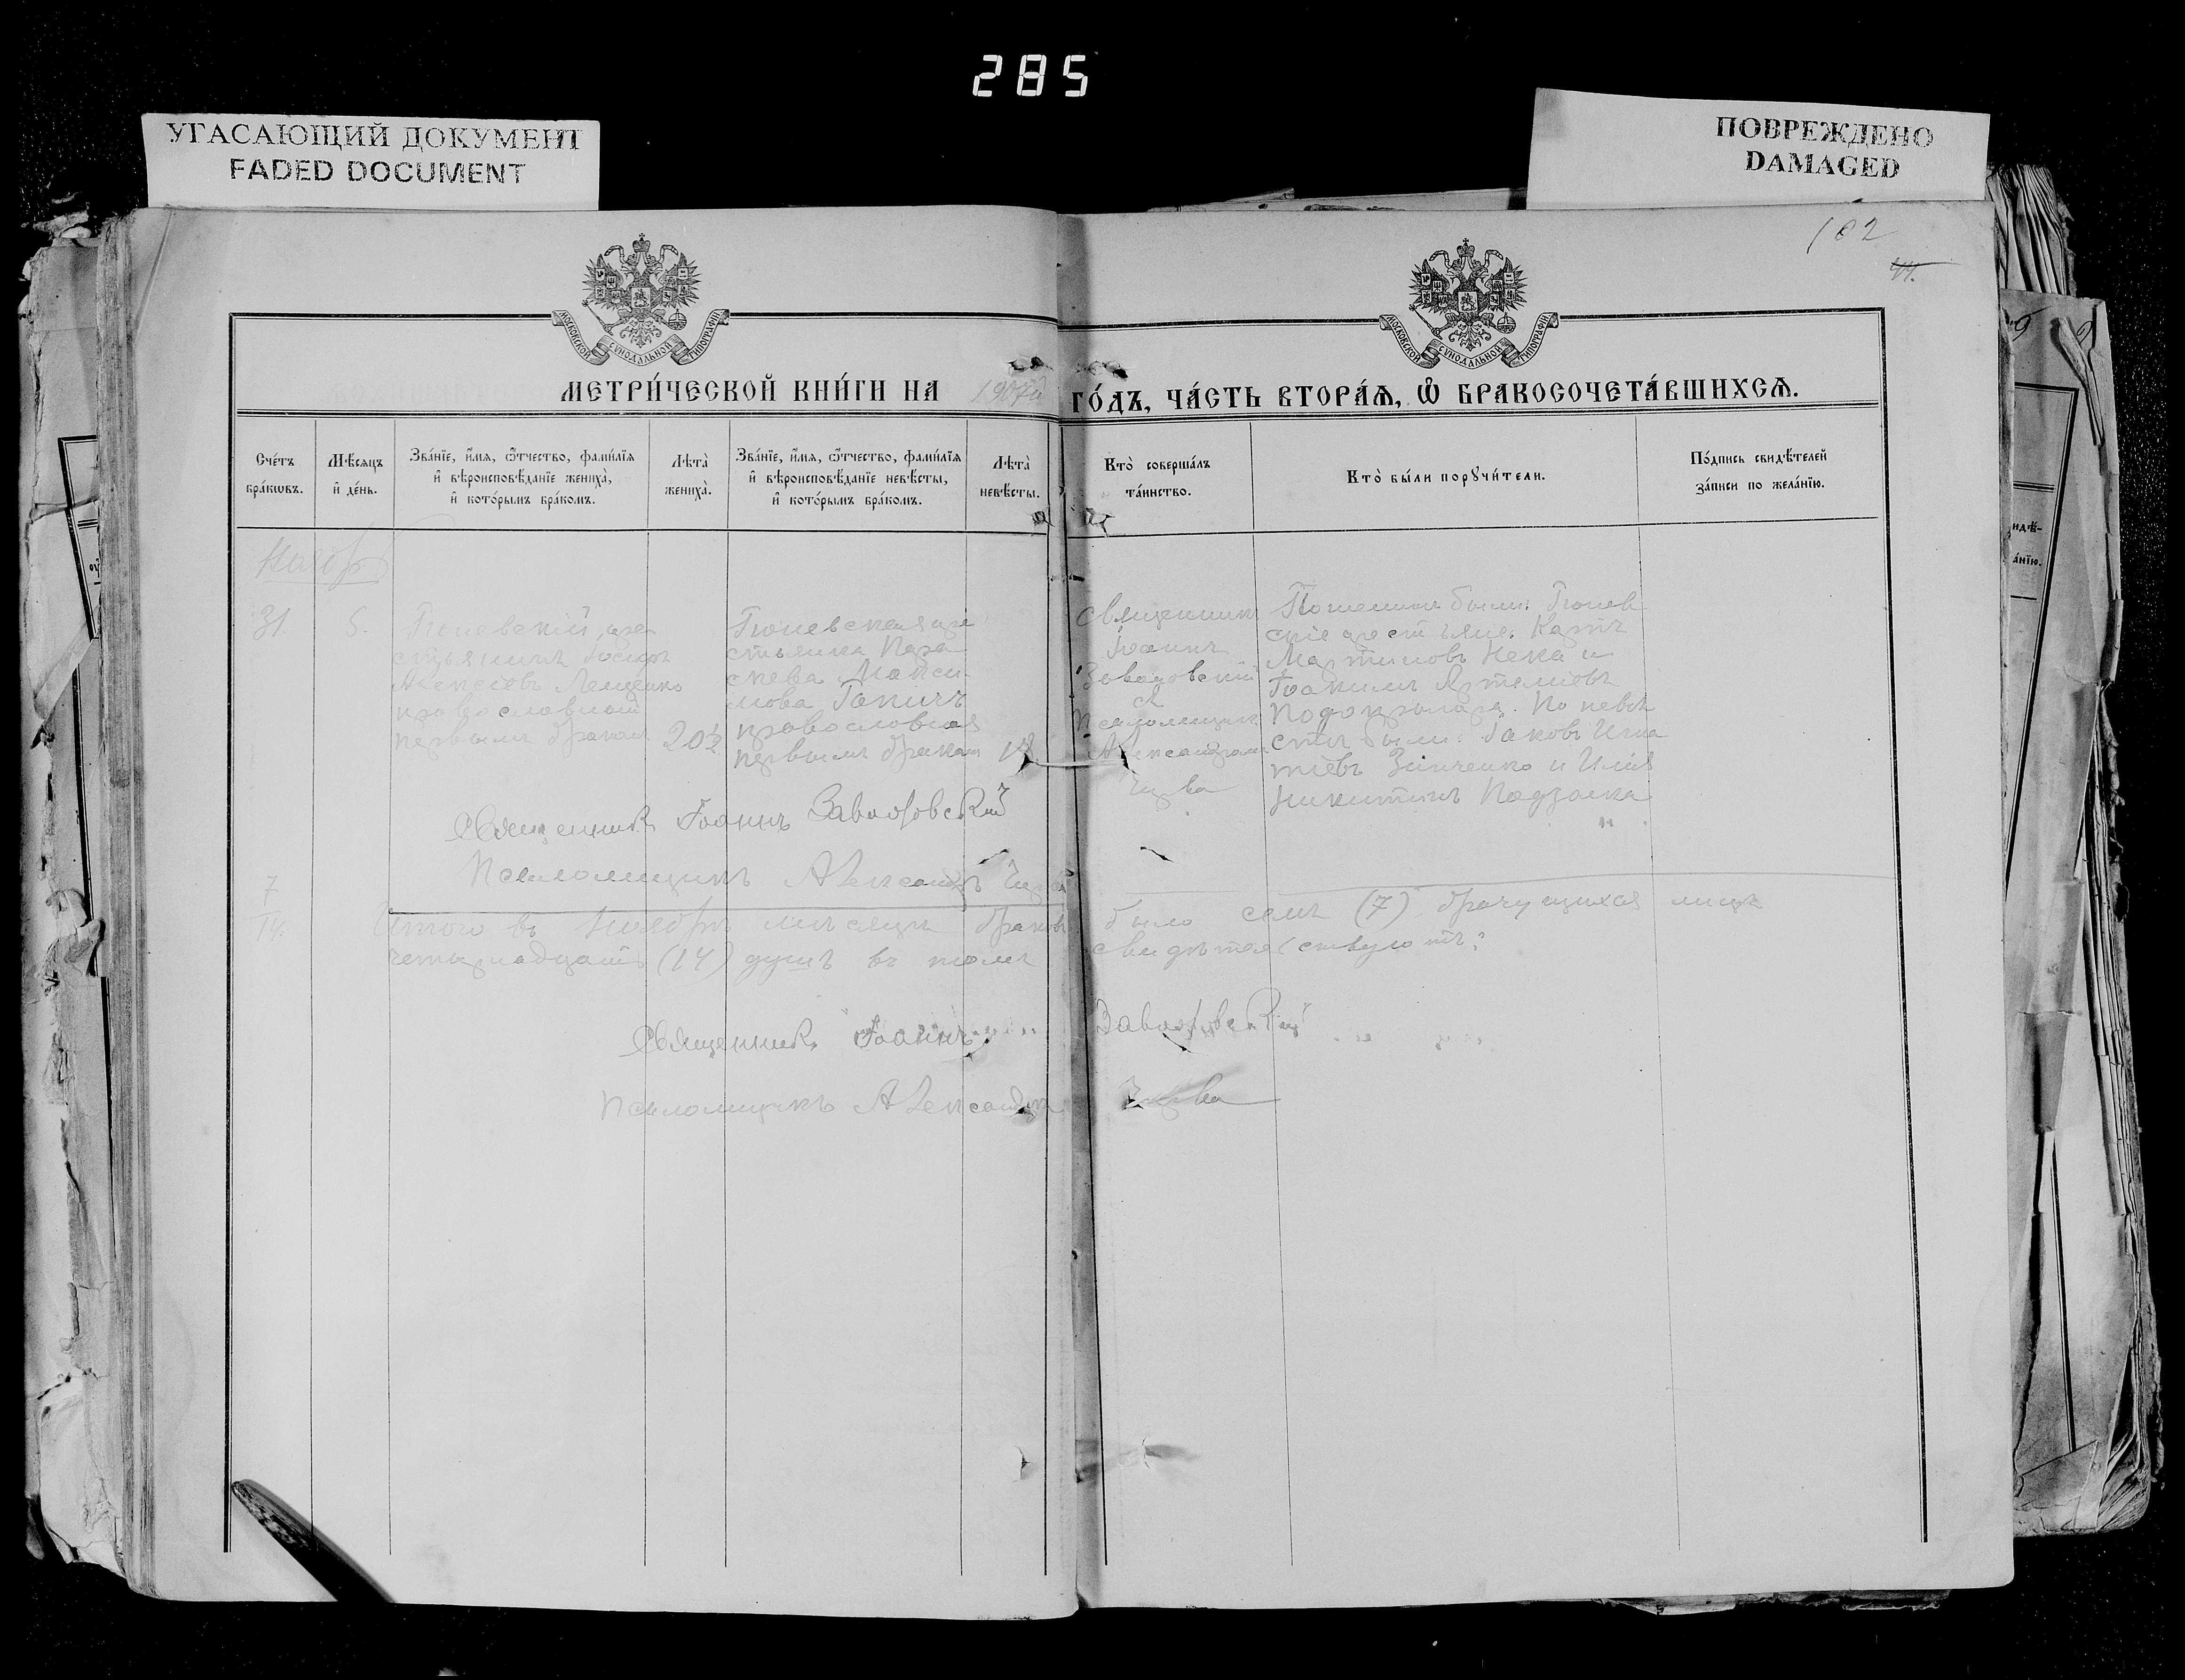 285
УГАСАЮЩИЙ ДОКУМЕНТ
FADED DOCUMENT
ПОВРЕЖДЕНО
DAMAGED
102
44.
МОСКОВСКОЙ СУНОДАЛЬНОЙ ТИПОГРАФІИ
МОСКОВСКОЙ СУНОДАЛЬНОЙ ТИПОГРАФІИ
МЕТРИ́ЧЕСКОЙ КНИ́ГИ НА 1907й ГО́ДЪ, ЧА́СТЬ ВТОРА́Ѧ, Ѽ БРАКОСОЧЕТА́ВШИХСѦ.
Сче́тъ
бра́кωвъ.
Мѣ́сяцъ
и҆ де́нь.
Зва́нїе, и҆́мѧ, ѻ҆́тчество, фами́лїѧ
и҆ вѣроисповѣ́данїе жениха̀,
и҆ кото́рымъ бра́комъ.
Лѣта̀
жениха̀.
Зва́нїе, и҆́мѧ, ѻ҆́тчество, фами́лїѧ
и҆ вѣроисповѣ́данїе невѣ́сты,
и҆ кото́рымъ бра́комъ.
Лѣта̀
невѣ́сты.
Кто̀ соверша́лъ
та́инство.
Кто̀ бы́ли порꙋчи́тели.
По́дпись свидѣ́телей
за́писи по жела́нїю.
Ноябрь
31.
5.
кре-
стьянинъ Іосифъ
Алексіевъ Лещенко
православный
первымъ бракомъ
20½
кре
стьянка Пара
скева Макси
мова
православная
первымъ бракомъ
18
Священникъ
Іоаннъ
Заводовскій
и
Псаломщикъ
Александръ
По женихѣ были:
скіе крестьяне: Карпъ
Мартиновъ Нека и
Іоакимъ Артеміевъ
По невѣ
стѣ были: Іаковъ Игна
тіевъ Зинченко и Илія
Никитинъ
Священникъ Іоаннъ Заводовскій
Псаломщикъ Александръ
7
14.
Итого въ Ноябрѣ мѣсяцѣ браковъ было семь (7) брачущихся лицъ
четырнадцать (14) душъ въ томъ свидѣтельствуютъ:
Священникъ Іоаннъ Заводовскій
Псаломщикъ Александръ